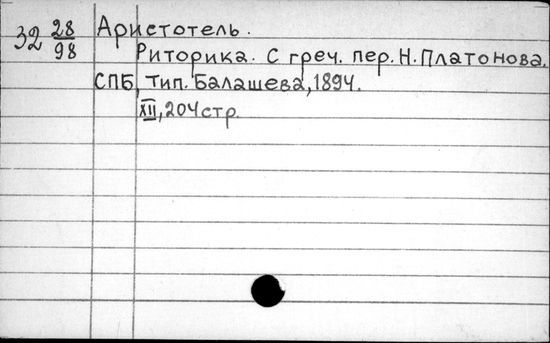 32 28/98 Аристотель.
Риторика. С греч. пер. Н. Платонова.
СПБ, Тип. Балашева, 1894.
XII, 204 стр.